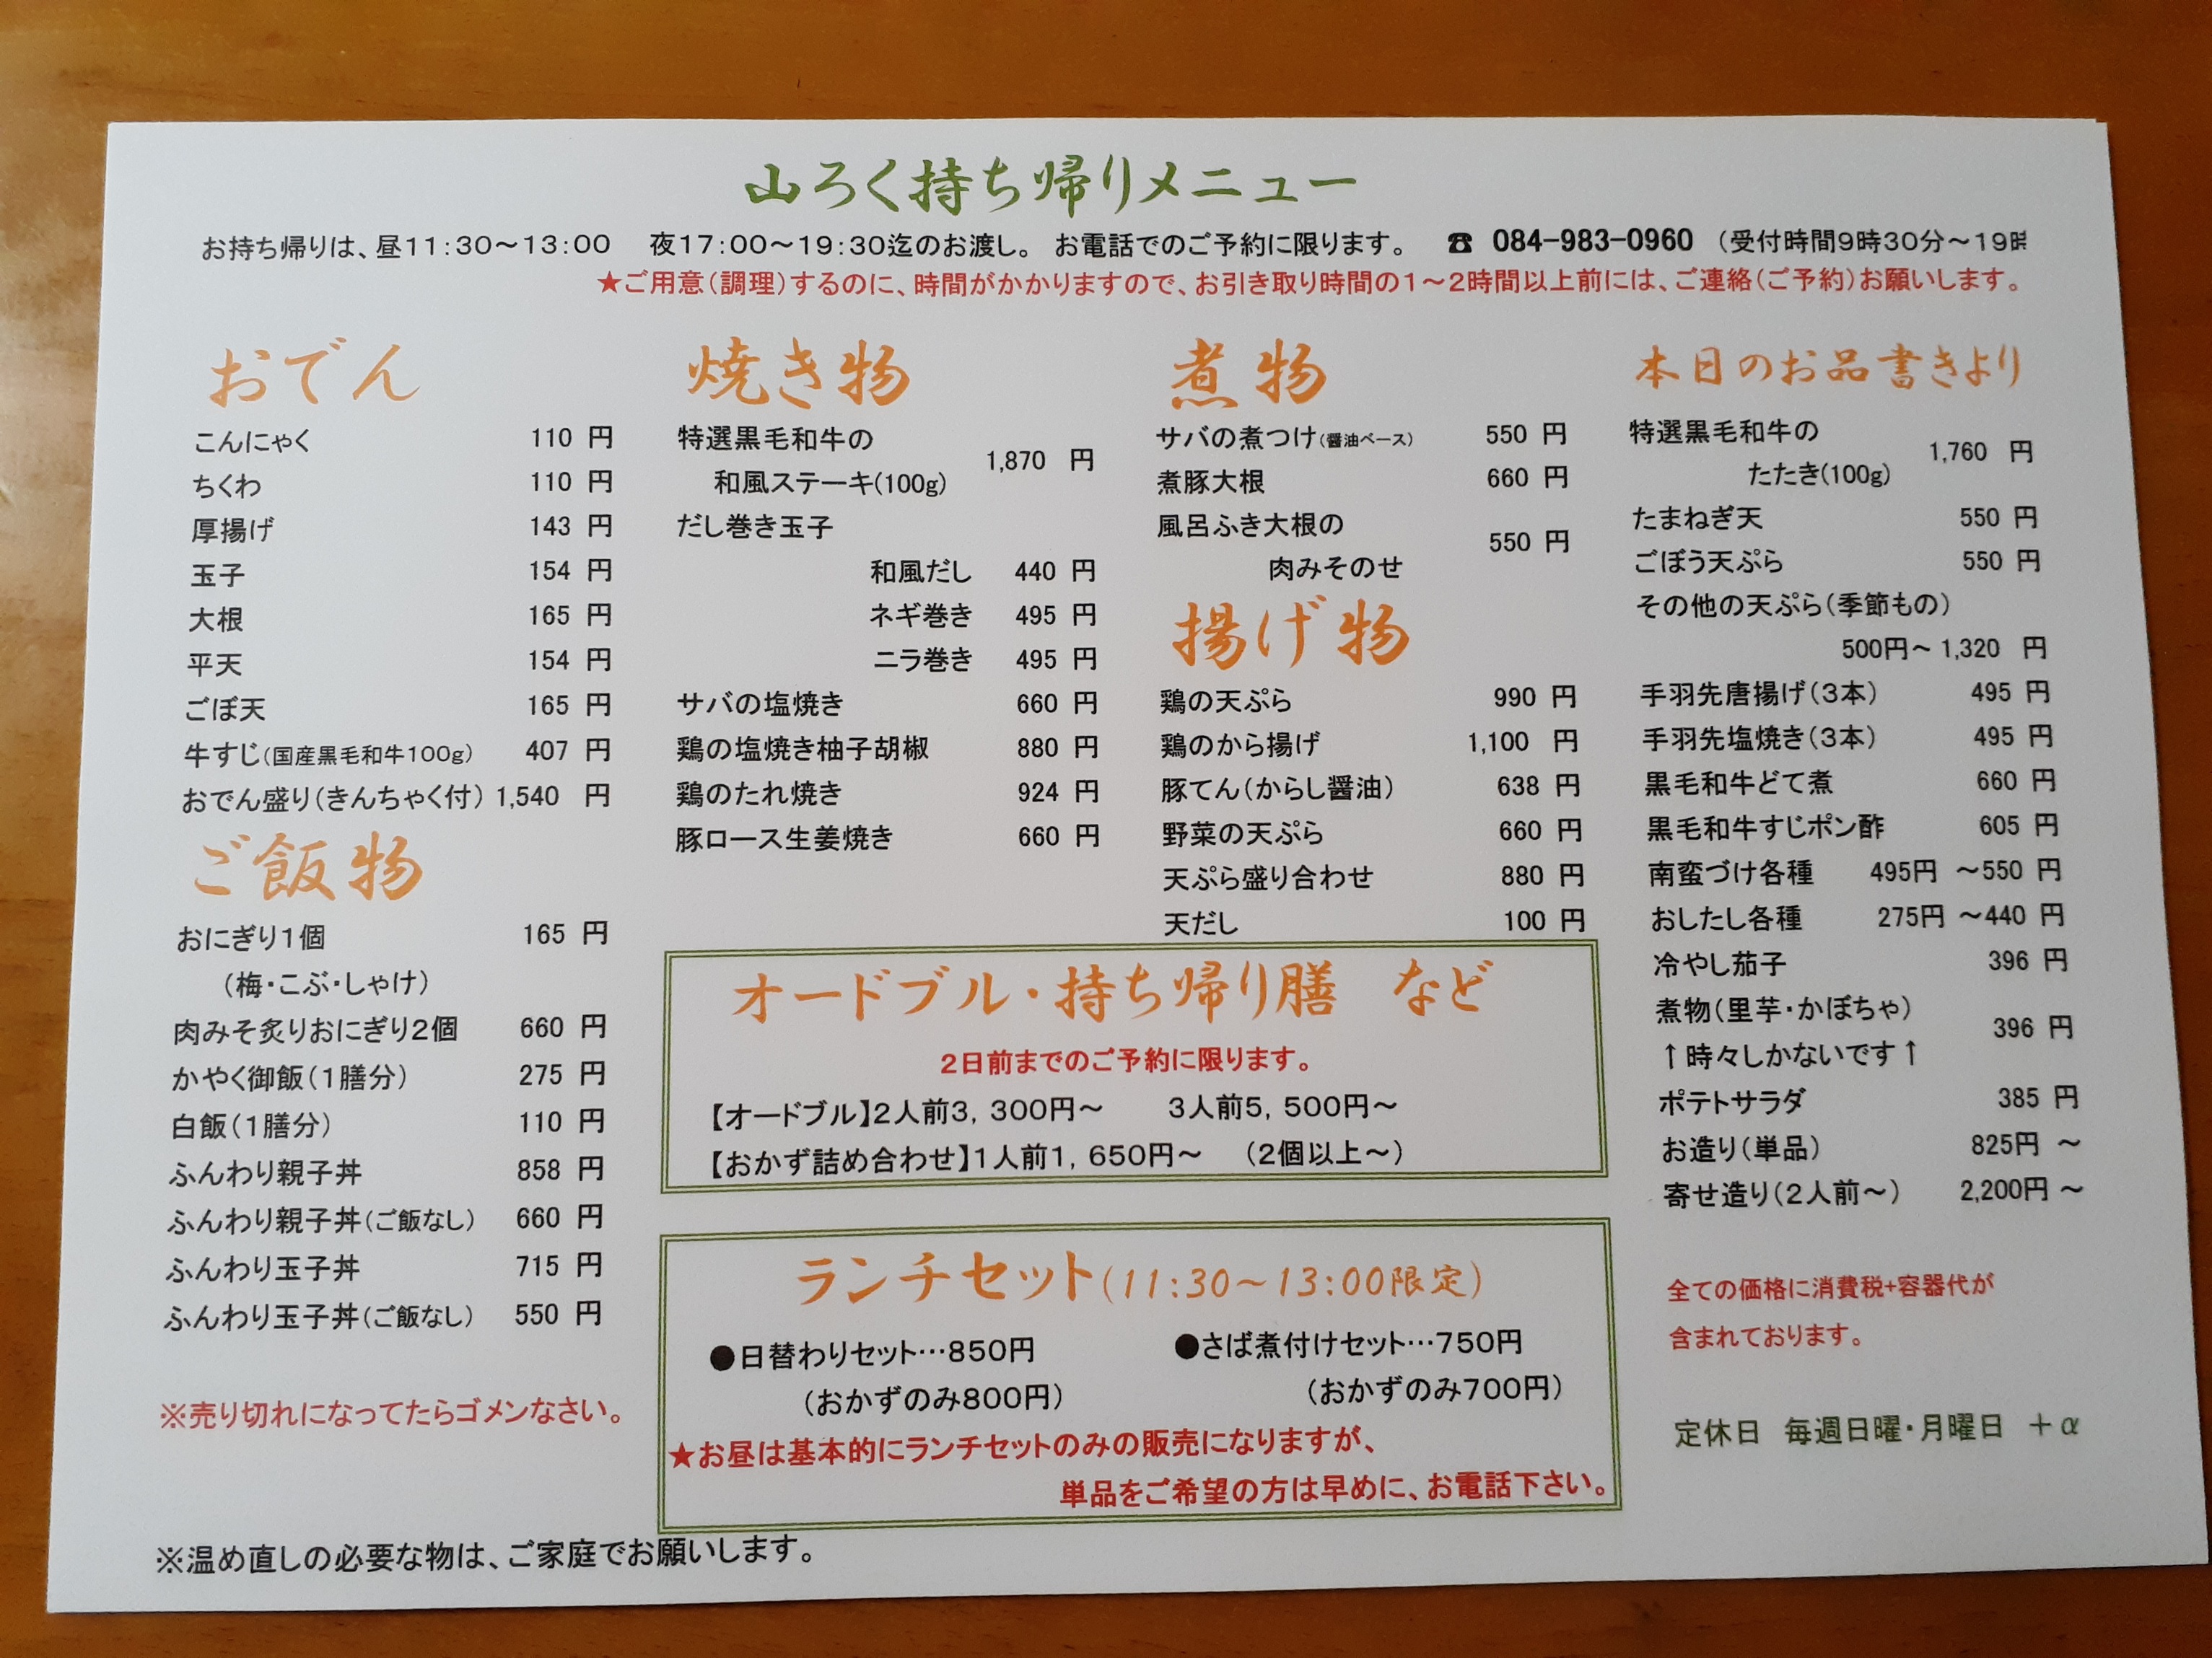 山ろく持ち帰りメニュー
お持ち帰りは、昼11:30～13:00　夜17:00～19:30迄のお渡し。 お電話でのご予約に限ります。 ☎ 084-983-0960 （受付時間9時30分～19時
★ご用意（調理）するのに、時間がかかりますので、お引き取り時間の1～2時間以上前には、ご連絡（ご予約）お願いします。
おでん
こんにゃく 110 円
ちくわ 110 円
厚揚げ 143 円
玉子 154 円
大根 165 円
平天 154 円
ごぼ天 165 円
牛すじ（国産黒毛和牛100g） 407 円
おでん盛り（きんちゃく付） 1,540 円
ご飯物
おにぎり1個 165 円
（梅・こぶ・しゃけ）
肉みそ炙りおにぎり2個 660 円
かやく御飯（1膳分） 275 円
白飯（1膳分） 110 円
ふんわり親子丼 858 円
ふんわり親子丼（ご飯なし） 660 円
ふんわり玉子丼 715 円
ふんわり玉子丼（ご飯なし） 550 円
※売り切れになってたらゴメンなさい。
焼き物
特選黒毛和牛の
和風ステーキ(100g) 1,870 円
だし巻き玉子
和風だし 440 円
ネギ巻き 495 円
ニラ巻き 495 円
サバの塩焼き 660 円
鶏の塩焼き柚子胡椒 880 円
鶏のたれ焼き 924 円
豚ロース生姜焼き 660 円
煮物
サバの煮つけ（醤油ベース） 550 円
煮豚大根 660 円
風呂ふき大根の
肉みそのせ 550 円
揚げ物
鶏の天ぷら 990 円
鶏のから揚げ 1,100 円
豚てん（からし醤油） 638 円
野菜の天ぷら 660 円
天ぷら盛り合わせ 880 円
天だし 100 円
オードブル・持ち帰り膳　など
2日前までのご予約に限ります。
【オードブル】2人前3，300円～　3人前5，500円～
【おかず詰め合わせ】1人前1，650円～　（2個以上～）
ランチセット（11:30～13:00限定）
●日替わりセット…850円　●さば煮付けセット…750円
（おかずのみ800円）　（おかずのみ700円）
★お昼は基本的にランチセットのみの販売になりますが、
単品をご希望の方は早めに、お電話下さい。
本日のお品書きより
特選黒毛和牛の
たたき(100g) 1,760 円
たまねぎ天 550 円
ごぼう天ぷら 550 円
その他の天ぷら（季節もの）
500円～ 1,320 円
手羽先唐揚げ（3本） 495 円
手羽先塩焼き（3本） 495 円
黒毛和牛どて煮 660 円
黒毛和牛すじポン酢 605 円
南蛮づけ各種 495円 ～550 円
おしたし各種 275円 ～440 円
冷やし茄子 396 円
煮物（里芋・かぼちゃ） 396 円
↑時々しかないです↑
ポテトサラダ 385 円
お造り（単品） 825円 ～
寄せ造り（2人前～） 2,200円 ～
全ての価格に消費税+容器代が
含まれております。
定休日　毎週日曜・月曜日　＋α
※温め直しの必要な物は、ご家庭でお願いします。